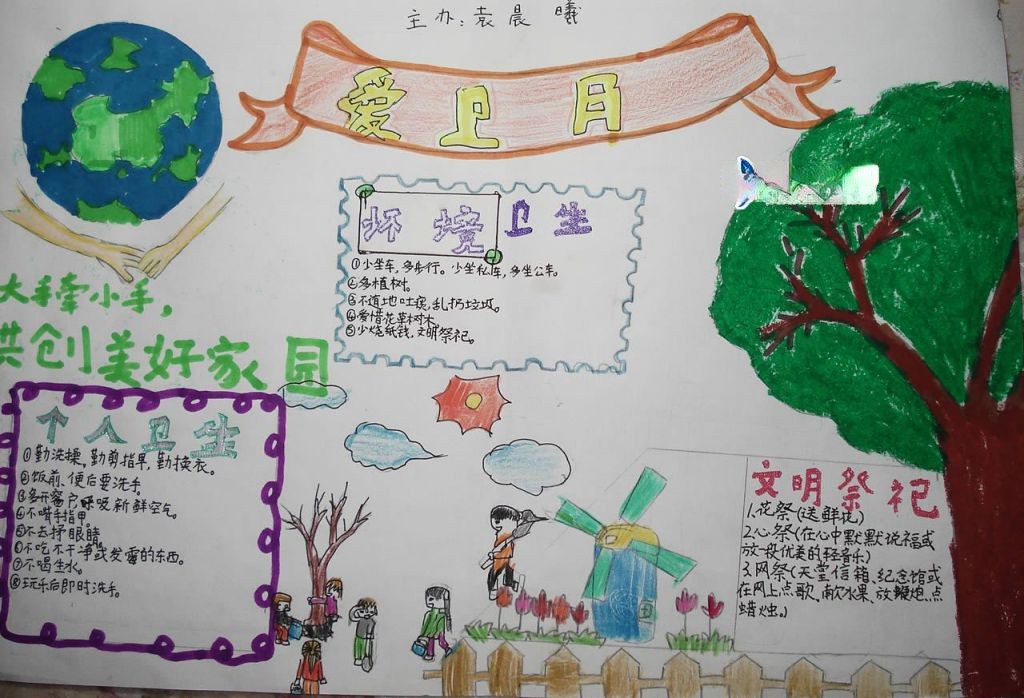 主办:袁晨曦
爱卫月
环境卫生
①少坐车,多步行。少坐私车,多坐公车。
②多植树。
③不随地吐痰,乱扔垃圾。
④爱惜花草树木
⑤少烧纸钱,文明祭祀。
大手牵小手,
共创美好家园
个人卫生
①勤洗澡,勤剪指甲,勤换衣。
②饭前、便后要洗手。
③多开窗户呼吸新鲜空气。
④不啃手指甲。
⑤不去揉眼睛
⑥不吃不干净或发霉的东西。
⑦不喝生水。
⑧玩乐后即时洗手。
文明祭祀
1.花祭(送鲜花)
2.心祭(在心中默默说福或
放一段优美的轻音乐)
3.网祭(天堂信箱、纪念馆或
在网上点歌、献水果、放鞭炮、点
蜡烛。)